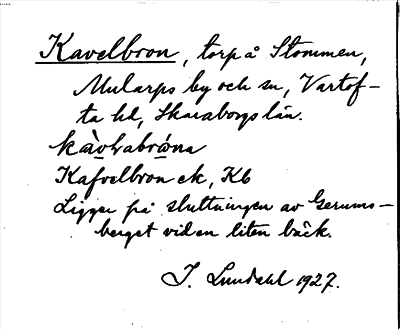 Kavelbron, torp å Stommen,
Mularps by och sn, Vartof-
ta hd, Skaraborgs län.
Kafvelbron ek, Kb
Ligger på sluttningen av Gerums-
berget vid en liten bäck.
J. Lundahl 1927.